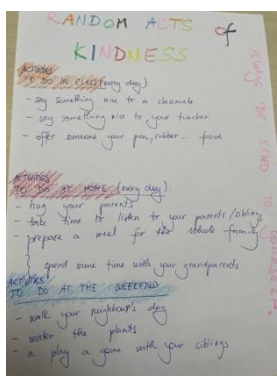 RANDOM ACTS of
KINDNESS
ACTIVITIES
TO DO IN CLASS (every day):
- say something nice to a classmate
- say something nice to your teacher
- offer someone your pen, rubber... food
ACTIVITIES
TO DO AT HOME (every day):
- hug your parents
- take time to listen to your parents/siblings
- prepare a meal for the whole family
spend some time with your grandparents
ACTIVITIES
TO DO AT THE WEEKEND
- walk your neighbour's dog
- water the plants
- a play a game with your siblings
ALWAYS BE KIND TO